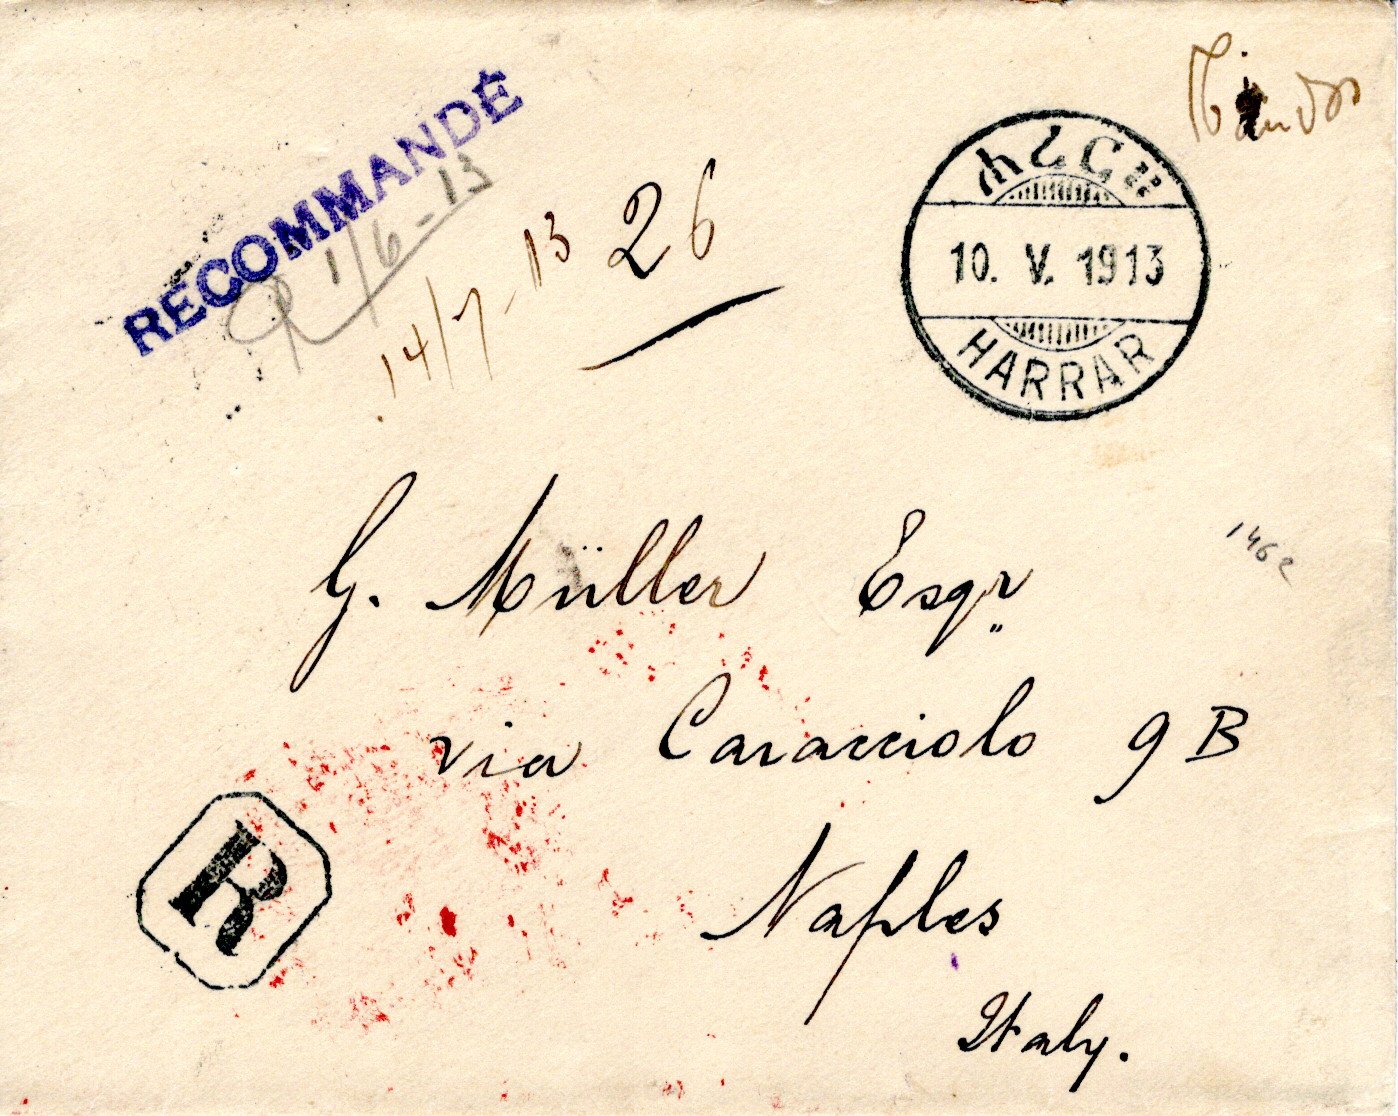 RECOMMANDÉ
R 1/6-13
14/7-13
26
ሐረርጌ
10. V. 1913
HARRAR
G. Müller Esqr
via Caracciolo 9 B
Naples
Italy.
R